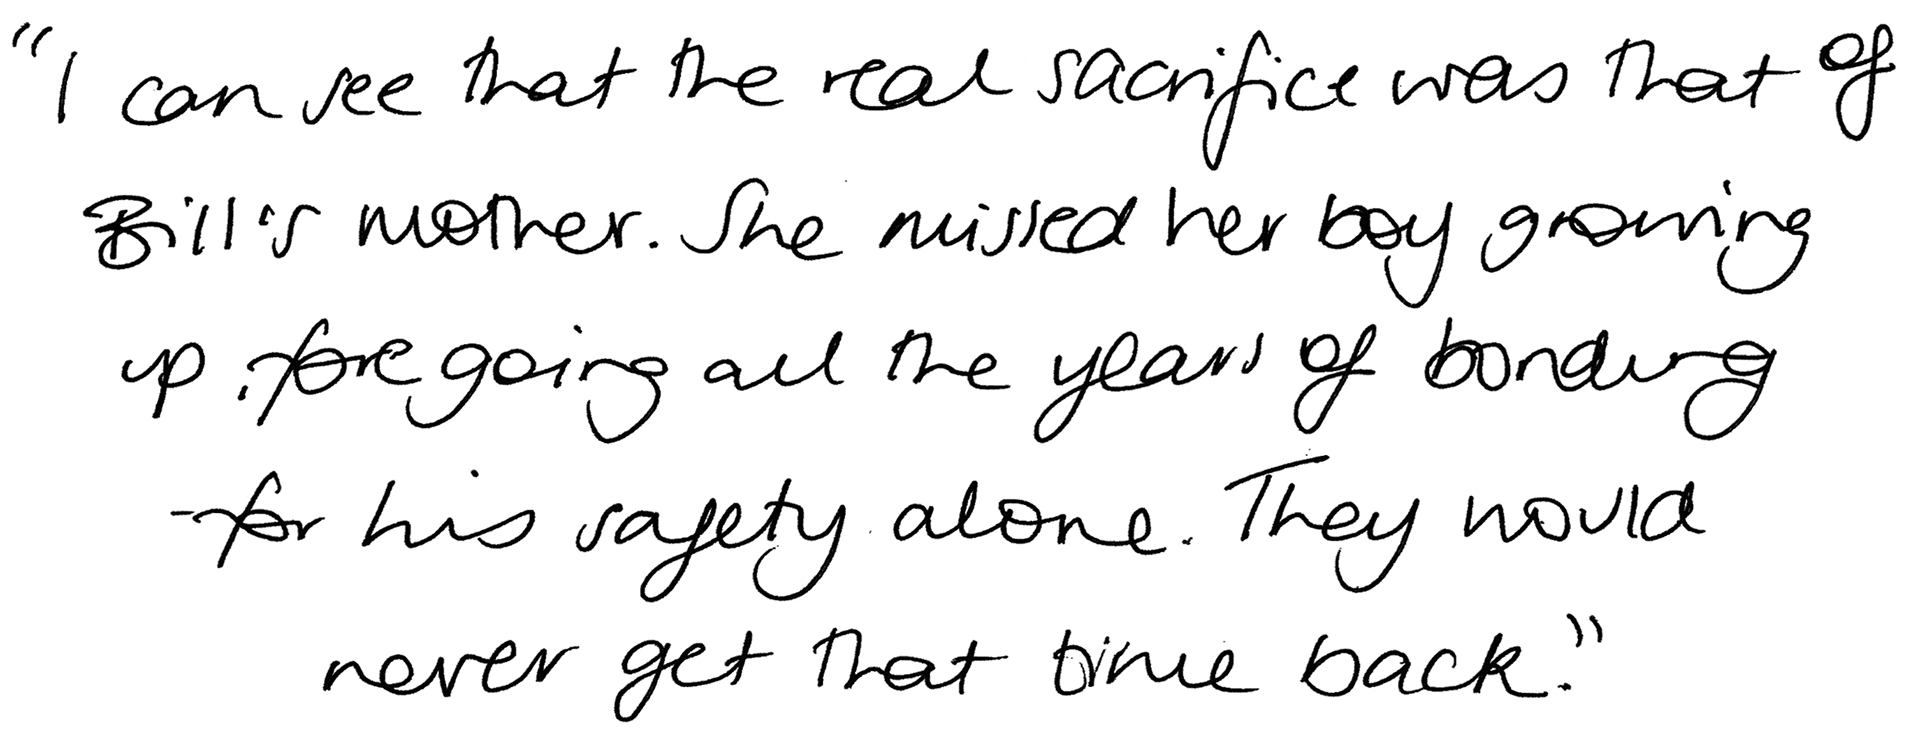 "I can see that the real sacrifice was that of
Bill's mother. She missed her boy growing
up, foregoing all the years of bonding
for his safety alone. They would
never get that time back."